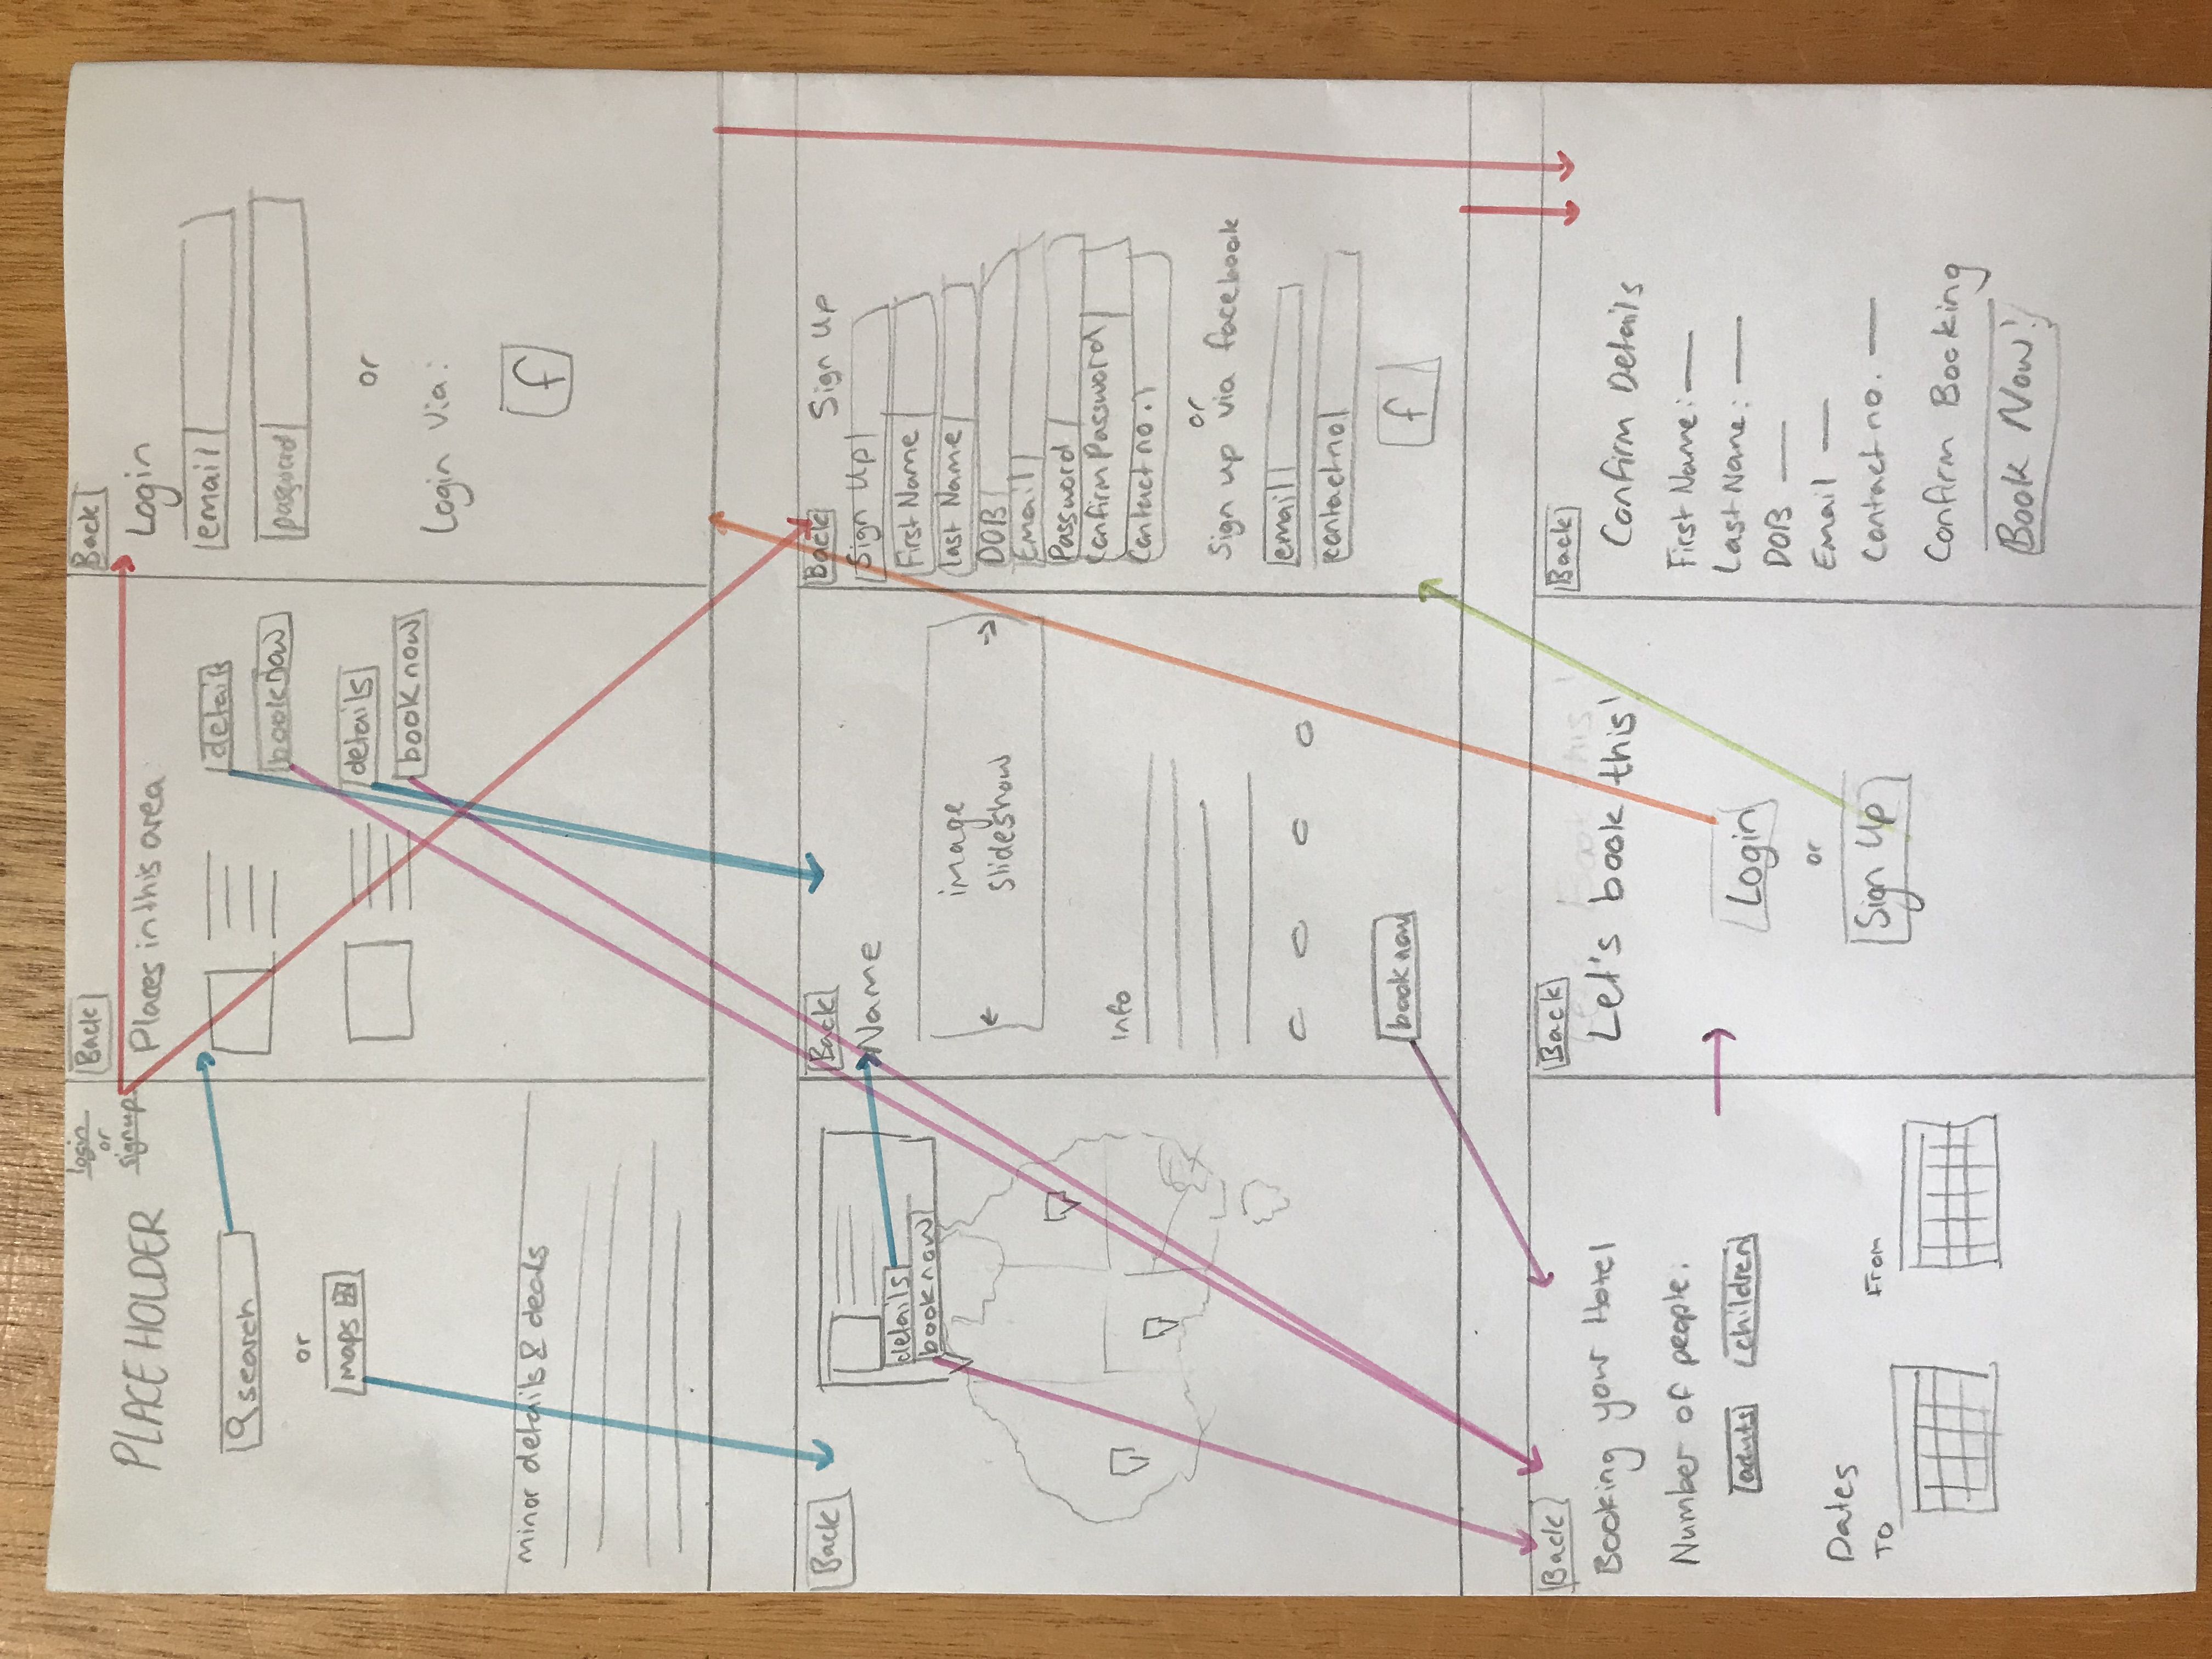 login
or
signup
PLACE HOLDER
search
or
maps
minor details & deals
Back
Places in this area
details
book now
details
book now
Back
Login
email
password
or
Login via:
f
Back
details
book now
Back
Name
image
slideshow
Info
book now
Back
Sign Up
Sign Up
First Name
last Name
DOB
Email
Password
Confirm Password
Contact no.
or
Sign up via facebook
email
contact no
f
Back
Booking your Hotel
Number of people:
adults children
Dates
TO From
Back
Let's book this!
Login
or
Sign Up
Back
Confirm Details
First Name:
Last Name:
DOB
Email
Contact no.
Confirm Booking
Book Now!